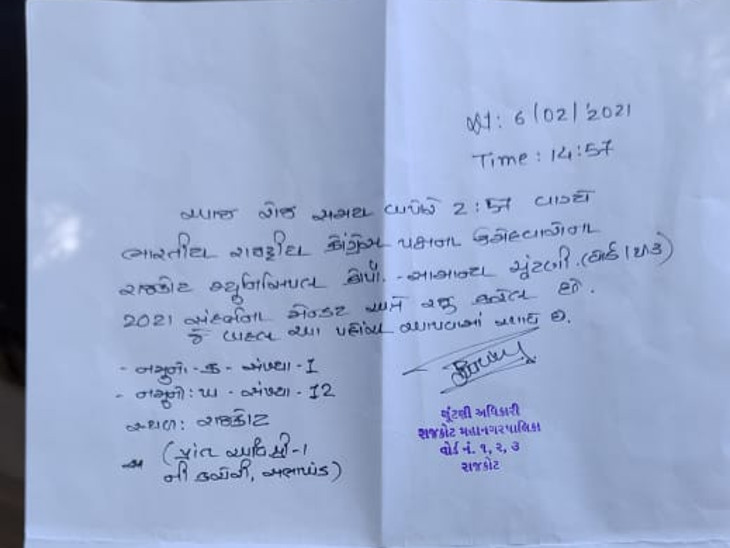 તા: 6/02/2021
Time: 14:57
આજ રોજ સમય બપોરે 2:57 વાગ્યે
ભારતીય રાષ્ટ્રીય કોંગ્રેસ પક્ષના ઉમેદવારોના
રાજકોટ મ્યુનિસિપલ કોર્પો. - સામાન્ય ચૂંટણી. (વોર્ડ 1 થી 3)
2021 સંદર્ભના મેન્ડેટ અત્રે રજુ કરેલ છે.
જે બદલ આ પહોંચ આપવામાં આવે છે.
- નમુનો - ક - સંખ્યા - 1
- નમુનો: ખ - સંખ્યા - 12
સ્થળ: રાજકોટ
(પ્રાંત અધિકારીશ્રી-1
ની કચેરી, સભાખંડ)
ચૂંટણી અધિકારી
રાજકોટ મહાનગરપાલિકા
વોર્ડ નં. ૧, ૨, ૩
રાજકોટ